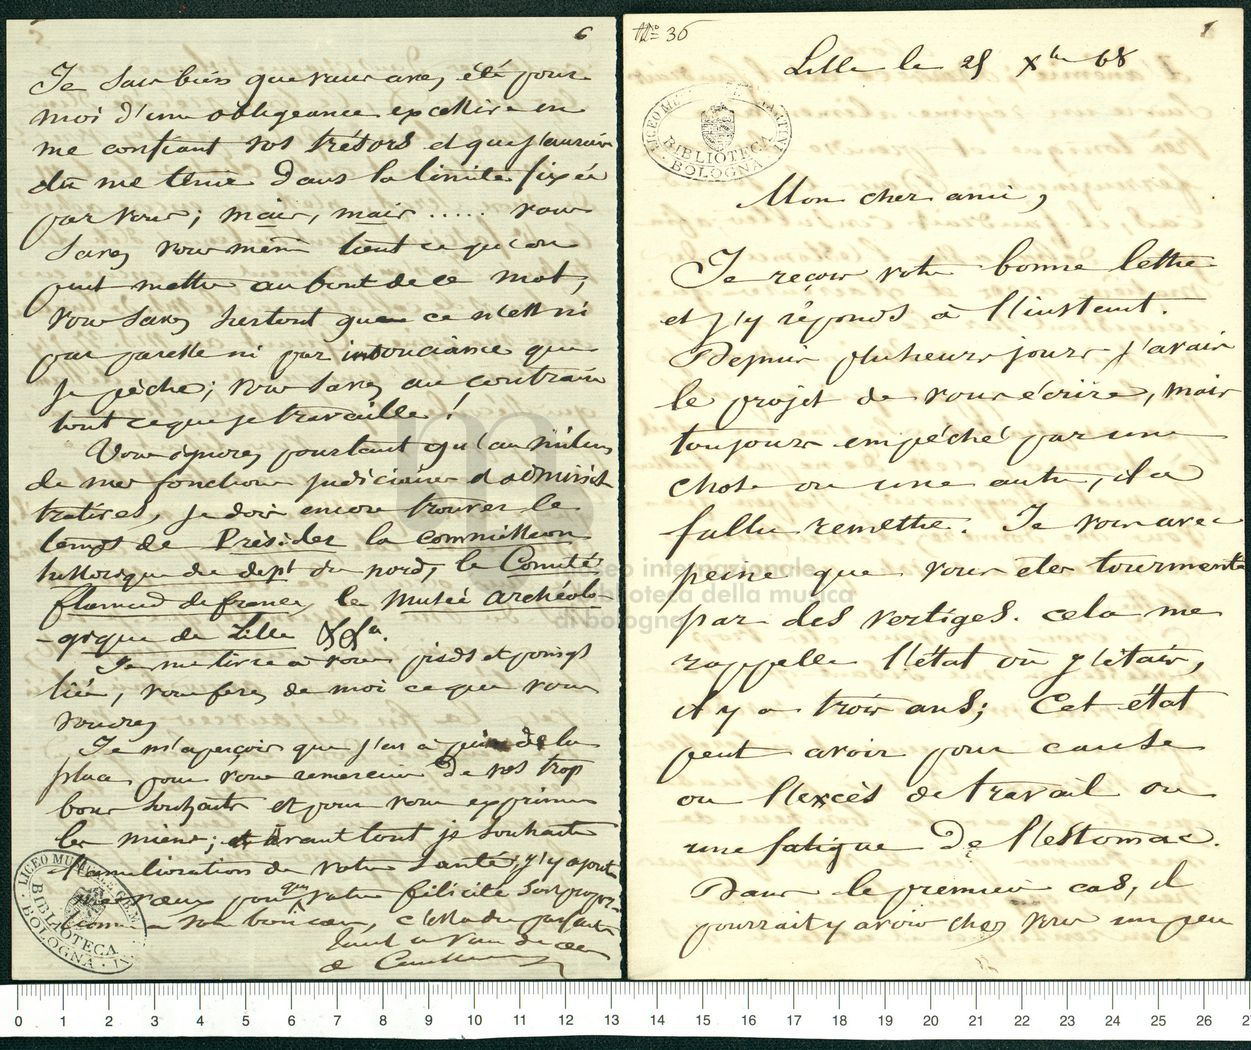 6
Je sais bien que vous avez été pour
moi d'une obligeance excessive en
me confiant vos trésors et que j'aurais
dû me tenir dans la limite fixée
par vous; mais, mais ..... vous
savez vous même tout ce qu'on
peut mettre au bout de ce mot,
vous savez surtout que ce n'est ni
par paresse ni par insouciance que
je pèche; vous savez au contraire
tout ce que je travaille!
Vous ignorez pourtant qu'au milieu
de mes fonctions judiciaires et administ
tratives, je dois encore trouver le
temps de Présider la commission
historique du dept du nord, le Comité
flamand de france, le Musée archéolo-
-gique de Lille &&a.
Je me livre à vous pieds et poings
liés, vous ferez de moi ce que vous
voudrez
Je m'aperçois que j'ai à peine de la
place pour vous remercier de vos trop
bons souhaits et pour vous exprimer
les miens; avant tout je souhaite
l'amélioration de votre santé, j'y ajoute
mes vœux pour que votre félicité soit
comme votre bon cœur, c'est à dire parfaite
Tout à vous de cœur
de Coussemaker
LICEO MUSICALE
BIBLIOTECA
BOLOGNA
No 36
1
Lille le 25 Xbre 68
LICEO MUSICALE
BIBLIOTECA
BOLOGNA
Mon cher ami,
Je reçois votre bonne lettre
et j'y réponds à l'instant.
Depuis plusieurs jours j'avais
le projet de vous écrire, mais
toujours empêché par une
chose ou une autre, il a
fallu remettre. Je vois avec
peine que vous êtes tourmenté
par des vertiges. cela me
rappelle l'état où j'étais,
il y a trois ans; Cet état
peut avoir pour cause
ou l'excès de travail ou
une fatigue de l'estomac.
Dans le premier cas, il
pourrait y avoir chez vous un peu
museo internazionale
e biblioteca della musica
di bologna
0 1 2 3 4 5 6 7 8 9 10 11 12 13 14 15 16 17 18 19 20 21 22 23 24 25 26